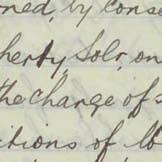 ned, by conse
herty, Solr, on
the change of
itions of